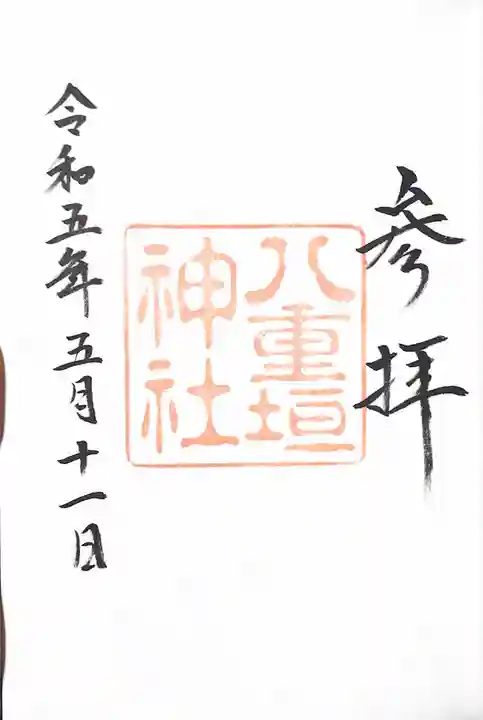 参拝
八重垣
神社
令和五年五月十一日